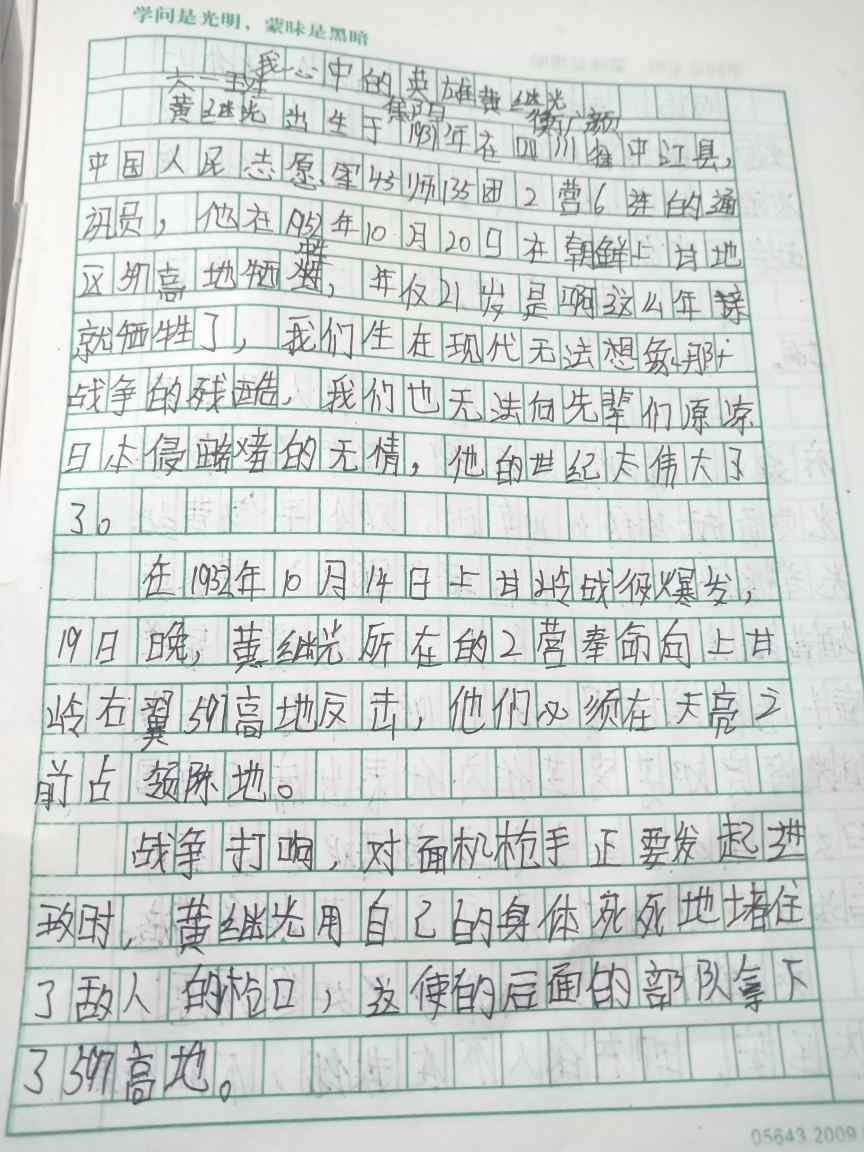 学问是光明，蒙昧是黑暗
我心中的英雄黄继光
六一班
黄继光出生于1931年在四川省中江县，
中国人民志愿军45师135团2营6连的通
讯员，他在1952年10月20日在朝鲜上甘地
区597高地牺牲，年仅21岁是啊这么年
就牺牲了，我们生在现代无法想象那个
战争的残酷，我们也无法向先辈们原凉
日本侵略者的无情，他的世纪太伟大了
了。
在1952年10月14日上甘岭战役爆发，
19日晚，黄继光所在的2营奉命向上甘
岭右翼597高地反击，他们必须在天亮之
前占领阵地。
战争打响，对面机枪手正要发起进
攻时，黄继光用自己的身体死死地堵住
了敌人的枪口，这使的后面的部队拿下
了597高地。
05643.2009